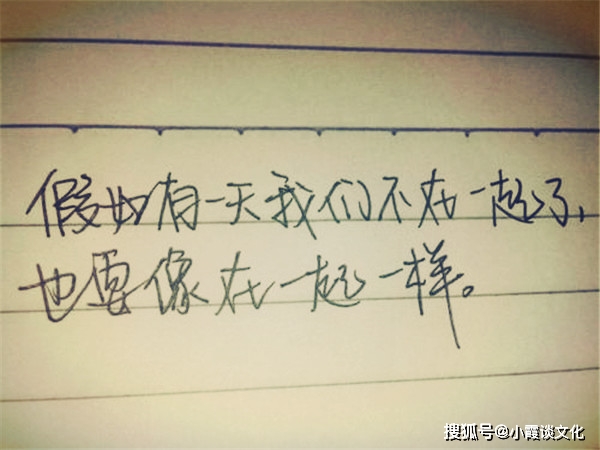 假如有一天我们不在一起了，
也要像在一起一样。
搜狐号@小霞谈文化